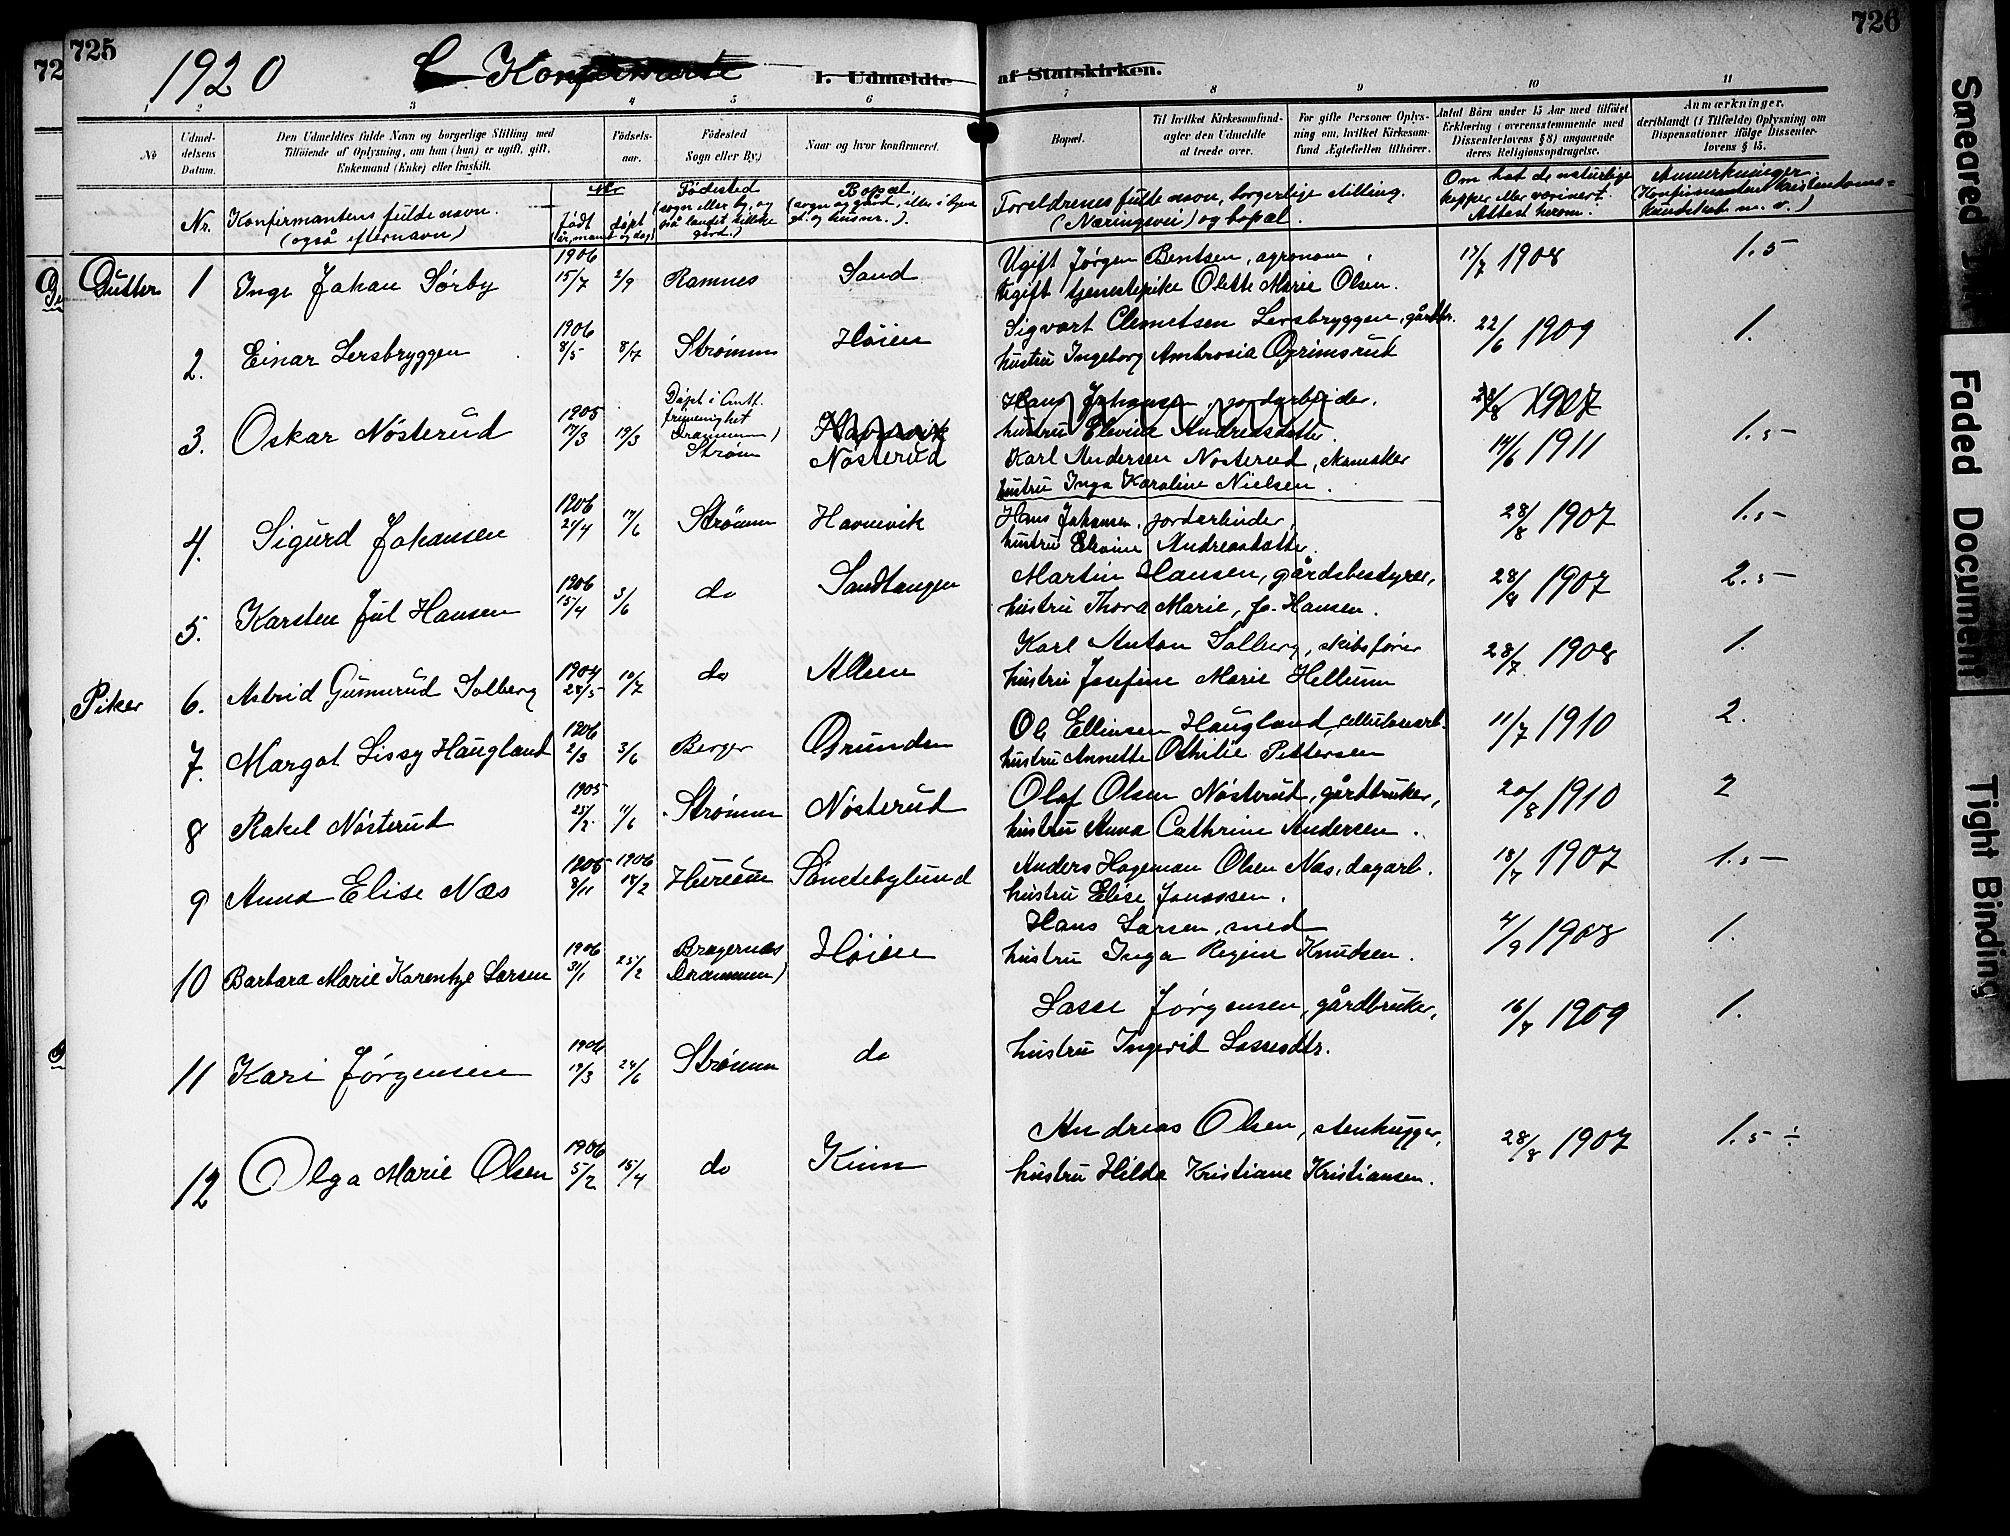 725
726
1920
Konfirmerte
L. Udmeldte af Statskirken.
1 2 3 4 5 6 7 8 9 10 11
No
Udmel-
delsens
Datum.
Den Udmeldtes fulde Navn og borgerlige Stilling med
Tilføiende af Oplysning, om han (hun) er ugift, gift,
Enkemand (Enke) eller fraskilt.
Fødsels-
aar.
Fødested
Sogn eller By.)
Naar og hvor konfirmeret.
Bopæl.
Til hvilket Kirkesamfund-
agter den Udmeldte
at træde over.
For gifte Personer Oplys-
ning om, hvilket Kirkesam-
fund Ægtefællen tilhører.
Antal Børn under 15 Aar med tilføiet
Erklæring (overensstemmende med
Dissenterlovens § 8) angaaende
deres Religionsopdragelse.
Anmærkninger,
deriblandt (i Tilfælde) Oplysning om
Dispensationer ifølge Dissenter-
lovens § 15.
Nr.
Konfirmantens fulde navn.
(også efternavn)
født
døpt
(år, måned og dag)
Fødested
(sogn eller by, og
på landet tillike
gård.)
Bopæl.
(sogn og gård, eller i byen
gt. og husnr.).
Foreldrenes fulle navn, borgerlige stilling.
(Næringsvei) og bopæl.
Om hat de naturlige
kopper eller vaksinert.
Attest herom.
Anmerkninger.
(Konfirmantens kristendoms=
kundskab m. v.)
Gutter 1 Inge Johan Sørby 1906 15/7 2/9 Ramnes Sand
Ugift Jørgen Bentsen, agronom, 17/7 1908 1.5
Ugift tjenestepike Olette Marie Olsen.
2. Einar Lersbryggen 1906 8/5 8/7 Strømm Høien
Sigvart Clemetsen Lersbryggen, gårdbr. 22/6 1909 1.
hustru Ingeborg Ambrosia Grimsrud
3. Oskar Nøsterud 1905 17/3 19/3 Strøm Havnevik
Nøsterud
Hans Johansen, jordarbeider, 28/8 1907
hustru Elevine Andreasdatter.
Karl Andersen Nøsterud, skomaker 14/6 1911 1.5
hustru Inga Karoline Nielsen.
4. Sigurd Johansen 1906 21/4 17/6 Strømm Havnevik
Hans Johansen, jordarbeider, 28/8 1907 1.5
hustru Elevine Andreasdatter.
5. Karsten Jul Hansen 1906 15/4 3/6 do Sandtangen
Martin Hansen, gårdsbestyrer, 28/8 1907 2.5
hustru Thora Marie, f. Hansen.
Piker 6. Astrid Gunnerud Solberg 1904 28/5 10/7 do
Karl Anton Solberg, skibsfører 28/7 1908 1.
hustru Josefine Marie Hellum
7. Margot Lissy Haugland 1906 2/3 3/6 Berger Grunden
Ole Ellinsen Haugland, cellulosearb. 11/7 1910 2.
hustru Annette Othilie Pettersen
8 Rakel Nøsterud 1905 25/2 11/6 Strømm Nøsterud
Olaf Olsen Nøsterud, gårdbruker, 20/8 1910 2
hustru Anna Cathrine Andersen.
9 Anna Elise Næs 1905 8/11 1906 18/2 Hurum Søndebylund
Anders Hageman Olsen Næs, dagarb. 18/7 1907 1.5
hustru Elise Jonassen.
10 Barbara Marie Karentze Larsen 1906 3/1 25/2 Bragernæs
Drammen) Høien
Hans Larsen, smed 4/9 1908 1.
hustru Inga Regine Knudsen.
11 Kari Jørgensen 1906 19/3 24/6 Strømm do
Lasse Jørgensen, gårdbruker, 16/7 1909 1.
hustru Ingerid Lassesdtr.
12 Olga Marie Olsen 1906 5/2 15/4 do Kinn
Andreas Olsen, stenhugger, 28/8 1907 1.5 ÷
hustru Hilda Kristiane Kristiansen.
Smeared
Faded Document
Tight Binding